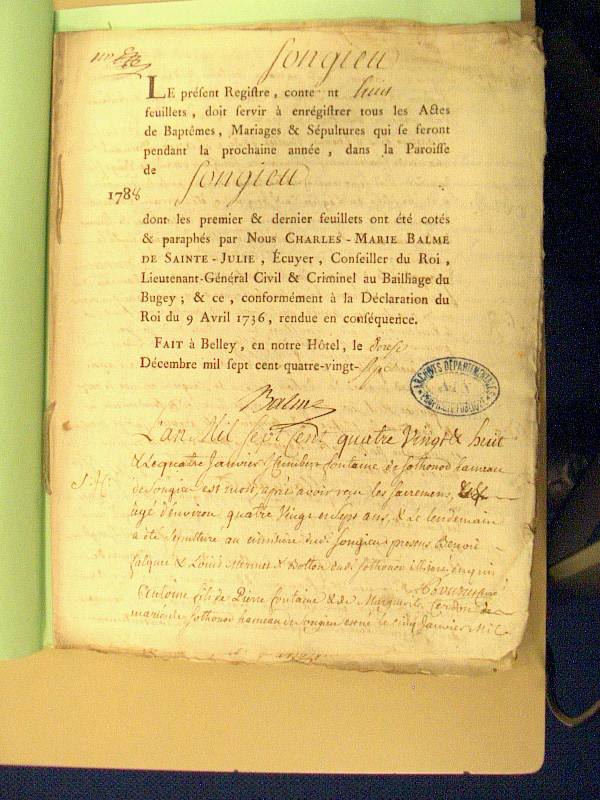 Songieu
LE préſent Regiſtre, conte nt huit
feuillets, doit ſervir à enrégiſtrer tous les Actes
de Baptêmes, Mariages & Sépultures qui ſe feront
pendant la prochaine année, dans la Paroiſſe
de Songieu
1788
dont les premier & dernier feuillets ont été cotés
& paraphés par Nous CHARLES-MARIE BALME
DE SAINTE-JULIE, Écuyer, Conſeiller du Roi,
Lieutenant-Général Civil & Criminel au Bailliage du
Bugey; & ce, conformément à la Déclaration du
Roi du 9 Avril 1736, rendue en conſéquence.
FAIT à Belley, en notre Hôtel, le douze
Décembre mil ſept cent quatre-vingt-sept
ARCHIVES DÉPARTEMENTALES
AIN
PROPRIÉTÉ PUBLIQUE
Balme
L'an Mil Sept Cent quatre Vingt & huit
& le quatre Janvier fontaine de Sothonod hameau
S. H.
de Songieu est mort après avoir reçu les sacremens,
agé d'environ quatre vingt ans, & le lendemain
a été sepulturé au cimitière dudi Songieu presens Benoit
falque & Louis Mermet & dudi Sothonod
Antoine fils de Pierre fontaine & de Marguerite Cordon
mariés de Sothonod hameau de Songieu est né le cinq Janvier Mil